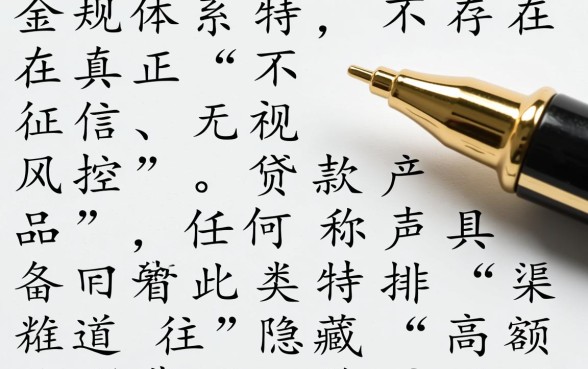 金规体系特，不存在
在真正“不
征信、无视
风控”。贷款产
品”，任何 称声具
备 此类特排“渠
道 往”隐藏“高额